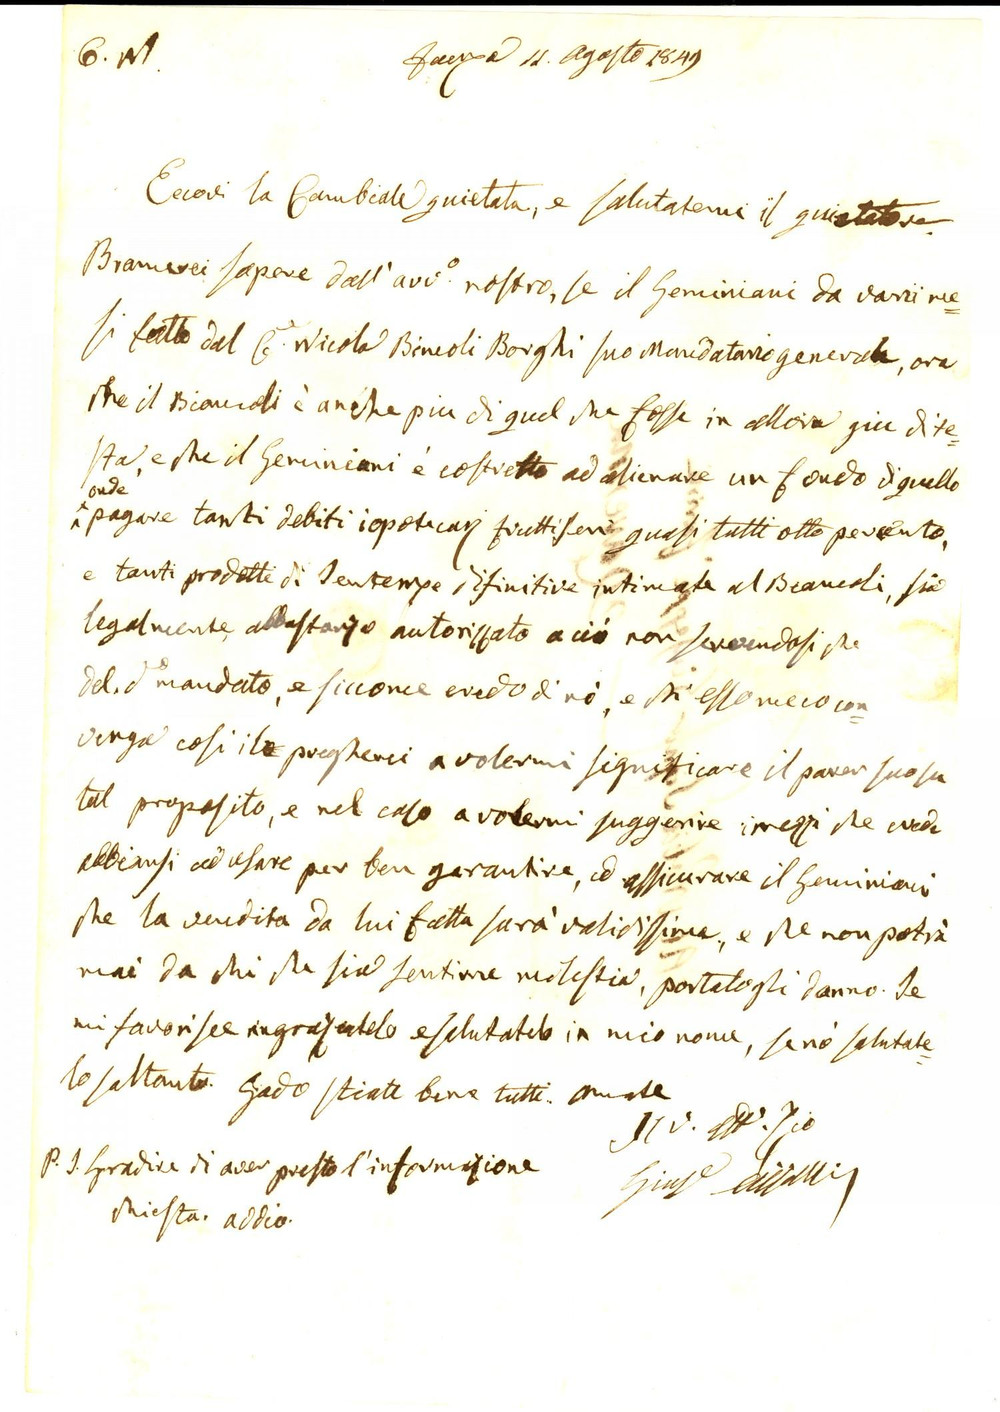 C. N.
Faenza 11. Agosto 1849
Eccovi la Cambiale quietata, e salutatemi il quietatore
Bramerei sapere dall' avv.o nostro, se il Geminiani da varii me=
si fatto dal C.e Nicola Biancoli Borghi suo Mandatario generale, ora
che il Biancoli è anche piu di quel che fosse in allora giu di te=
sta, e che il Geminiani è costretto ad alienare un fondo di quello
onde
pagare tanti debiti ipotecarj fruttiferi quasi tutti otto per cento,
e tanti prodotti di Sentenze difinitive intimate al Biancoli, sia
legalmente abbastanza autorizzato a ciò non servendosi che
del d.o mandato, e siccome credo di nò, e ch' esso meco con=
venga così il pregherei a volermi significare il parer suo su
tal proposito, e nel caso a volermi suggerire i mezzi che crede
abbiansi ad usare per ben garantire, ed assicurare il Geminiani
che la vendita da lui fatta sarà validissima, e che non potrà
mai da chi che sia sentirne molestia, portatogli danno. Se
mi favorisce ringraziatelo e salutatelo in mio nome, se nò salutate=
lo soltanto. State bene tutti. amate
Il v. aff. Zio
Gius.e
P. S. Gradirei di aver presto l'informazione
chiesta. addio.